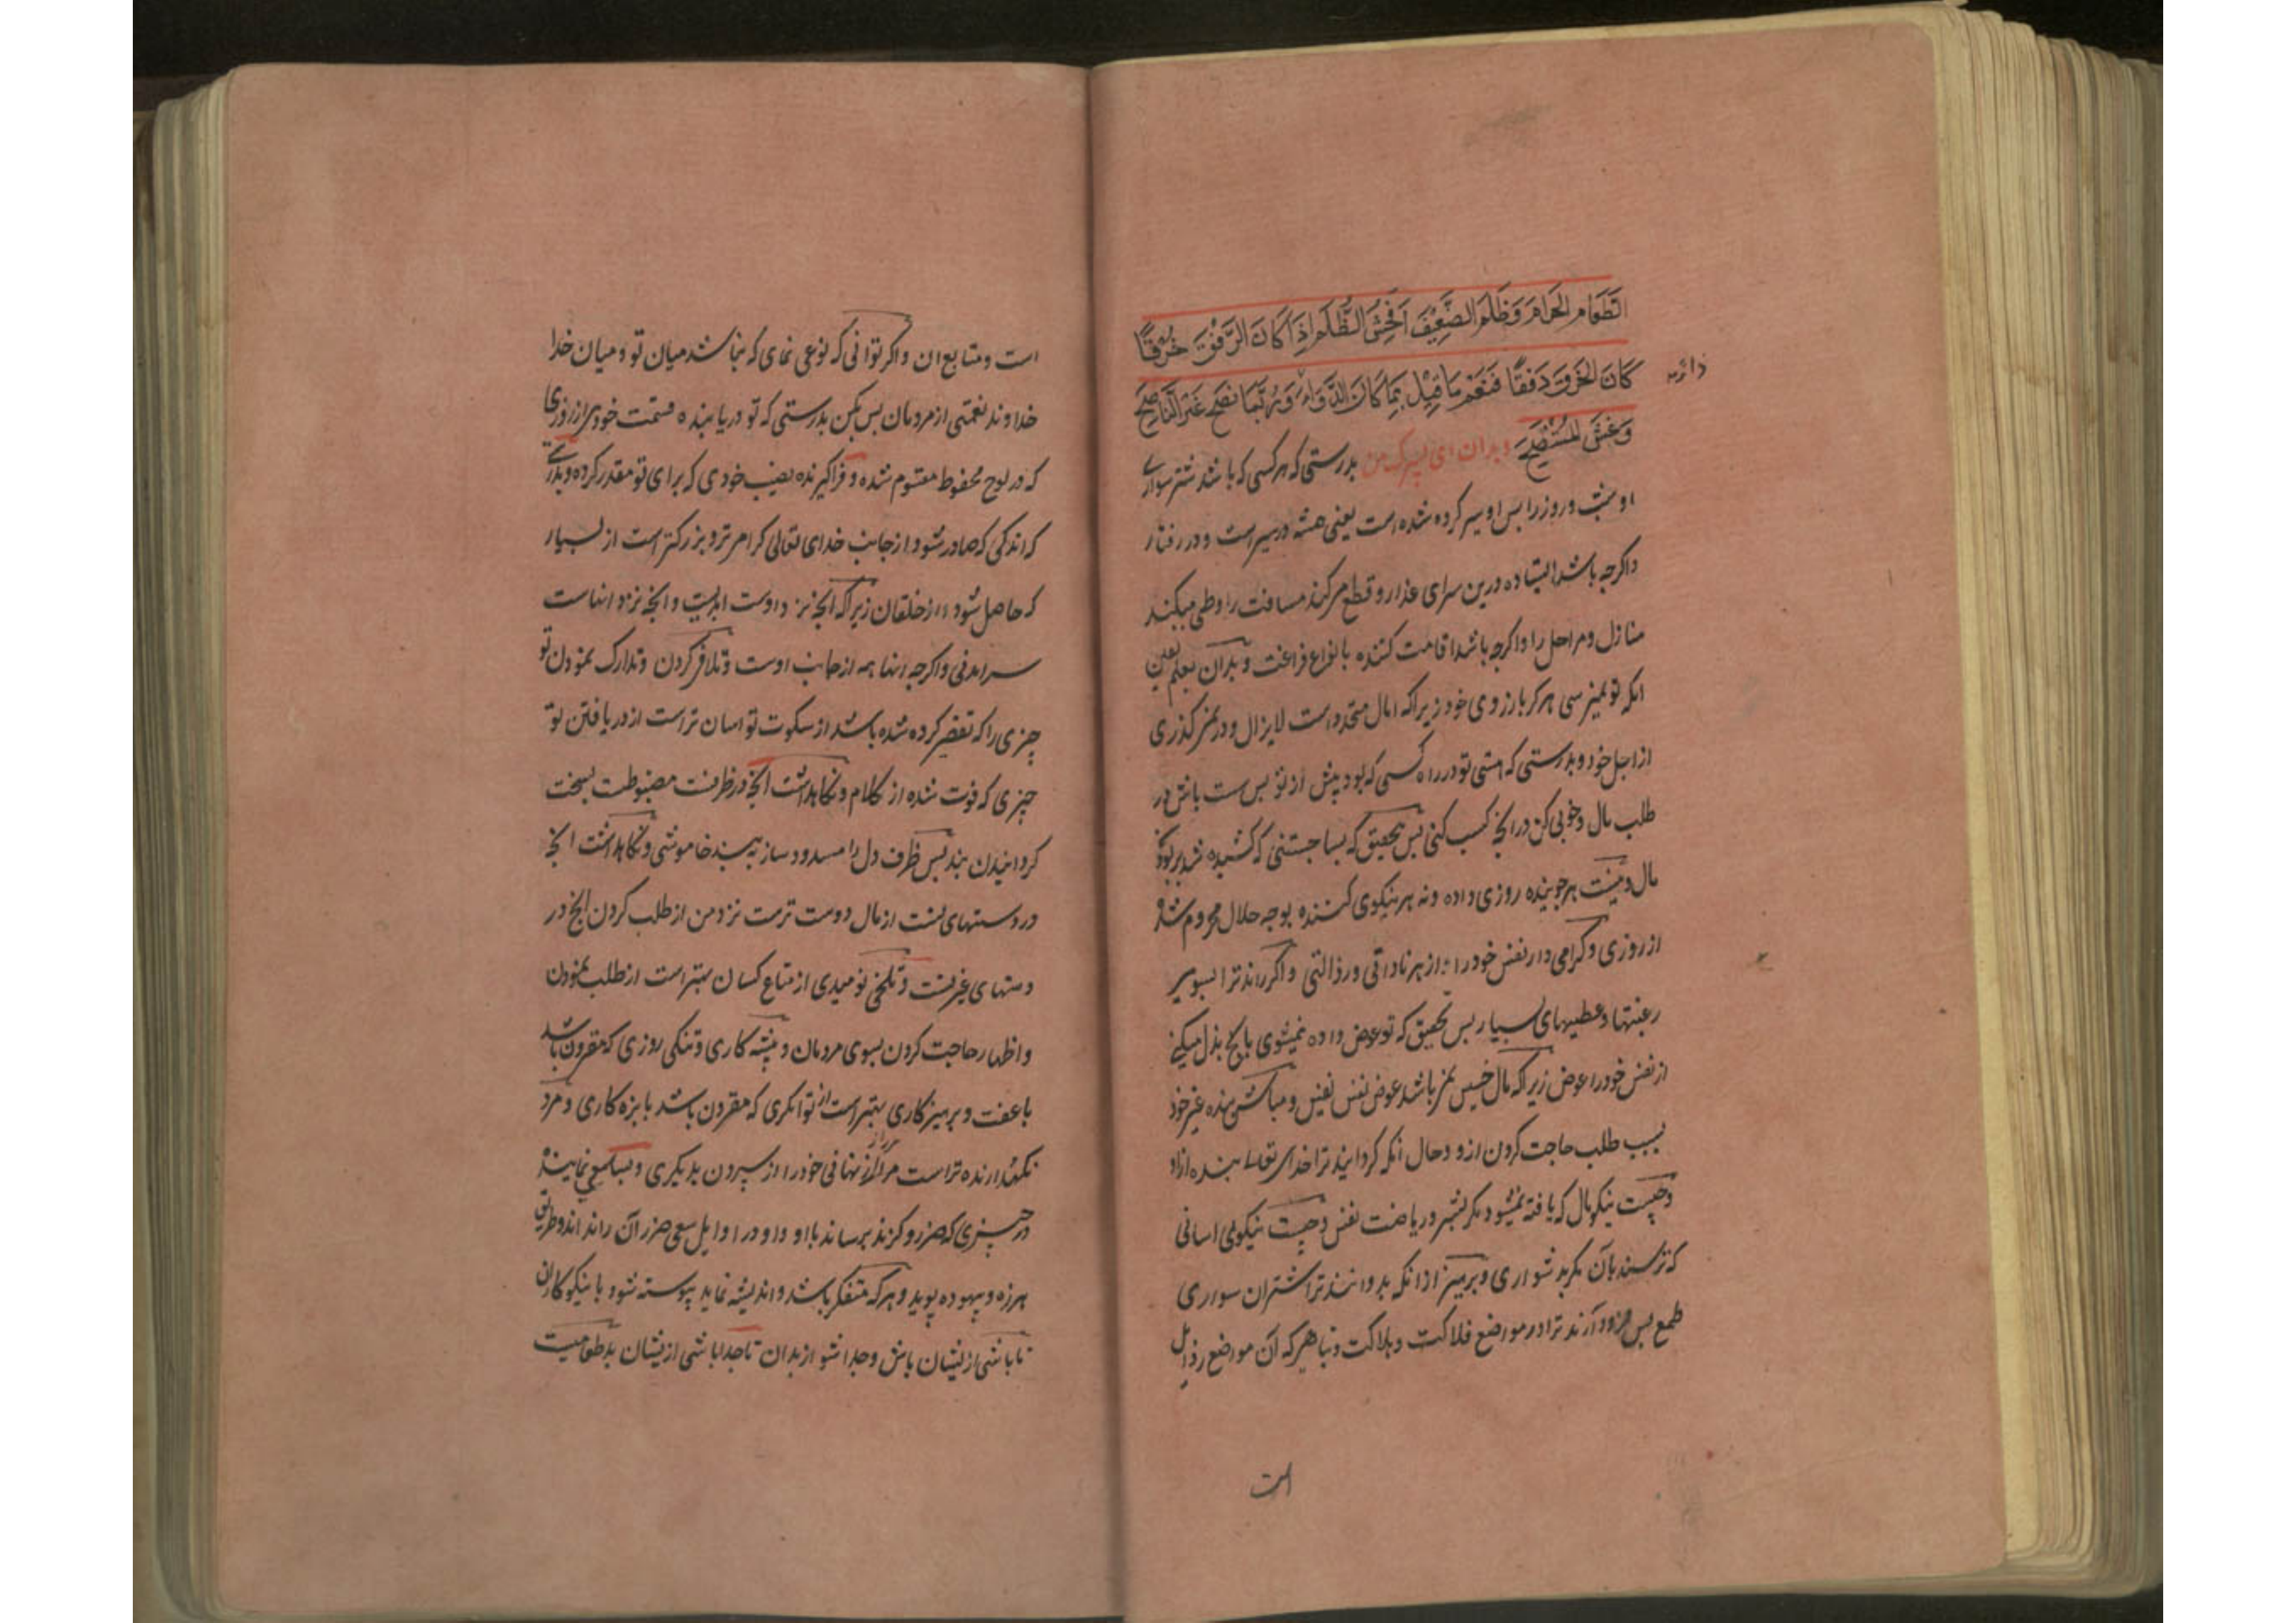 الطَّعَام الحَرام وَظُلْم الضَّعِيْفِ اَفْحَشُ الظُّلْم اِذَا كَانَ الرِّفْقُ خُرْقًا
كَانَ الخُرْقُ رِفْقًا فَنِعْمَ مَا قِيْلَ رُبَمَا كَانَ الدَّوَاءُ وَرُبَّمَا نَصَحَ غَيْرُ النَّاصِحِ
وَغَشَّ المُسْتَنْصَحُ وبدان ای پسرک من بدرستی که هر کسی که باشد شتر سواری
او شب و روز را پس او سیر کرده شده است یعنی همیشه در سیر است و در رفتار
واکرچه باشد ایستاده درین سرای غدار و قطع میکند مسافت را وطی میکند
منازل و مراحل را واکرچه باشد اقامت کننده بانواع فراغت و بدان بعلم یقین
انکه تو نمیرسی هرکز بارزوی خود زیراکه امال متجدد است لایزال و درنمی کذری
از اجل خود و بدرستی که هستی تو در راه کسی که بود پیش از تو پس سست باش در
طلب مال و خوبی کن در انچه کسب کنی پس بتحقیق که بسا جستنی که کشیده شد بربودن
مال و نیست هر جوینده روزی داده و نه هر نیکوی کننده بوجه حلال محروم شده
از روزی و کرامی دار نفس خود را از هر ناداقی و رذالتی و اکر راند ترا بسوی
رغبتها و عطیهای بسیار پس تحقیق که تو عوض داده نمیشوی بانچ بذل میکنی
از نفس خود را عوض زیراکه مال خسیس نمی باشد عوض نفس نفیس و مباش بنده غیر خود
بسبب طلب حاجت کردن ازو و حال انکه کردانید ترا خدای تعالی بنده ازاد
و چیست نیکو مال که یافته نمیشود مکر بشر و ریاضت نفس و چیست نیکوی اسانی
که نرسند بآن مکر بدشواری و بپرهیز ازانکه بدوانند ترا شتران سواری
طمع پس فرود آرند ترا در مواضع فلاکت و هلاکت و تباهی که آن مواضع رذایل
است
است و متابع ان و اکر توانی که نوعی نمای که نباشد میان تو و میان خدا
خداوند نعمتی از مردمان پس بکن بدرستی که تو دریابنده قسمت خودی از روزی
که در لوح محفوظ مقسوم شده و فراکیرنده نصیب خودی که برای تو مقدر کرده و بدرستی
که اندکی که صادر شود از جانب خدای تعالی کرامی تر و بزرکتر است از بسیار
که حاصل شود از خلقان زیراکه انچه نزد اوست ابدیست و انچه نزد انهاست
سرامدنی واکرچه انها همه از جانب اوست و تلافی کردن و تدارک نمودن تو
چیزی را که تقصیر کرده شده باشد از سکوت تو اسان تر است از دریافتن تو
چیزی که فوت شده از کلام و نکاهداشت انچه در ظرفست مضبوطست بسخت
کردانیدن بند پس ظرف دل را مسدود ساز به بند خاموشی و نکاهداشت انچه
در دستهای تست از مال دوست ترست نزد من از طلب کردن انچ در
دستهای غیرتست و تلخی نومیدی از متاع کسان بهتر است از طلب نمودن
و اظهار حاجت کردن بسوی مردمان و پیشه کاری و تنکی روزی که مقرون باشد
باعفت و پرهیزکاری بهتر است از توانکری که مقرون باشد با بزه کاری و مرد
نکهدارنده تر است مر راز نهانی خود را از سپردن بدیکری و بسا سعی نماینده
در چیزی که ضرر و کزند برساند با او و او در اوایل سعی ضرر آن را نداند و طریق
هرزه و بیهوده پوید و هرکه متفکر باشد و اندیشه نماید پیوسته شود با نیکوکاران
تا باشی ازیشان باش و جدا شو از بدان تا جدا باشی ازیشان بد طعامیست